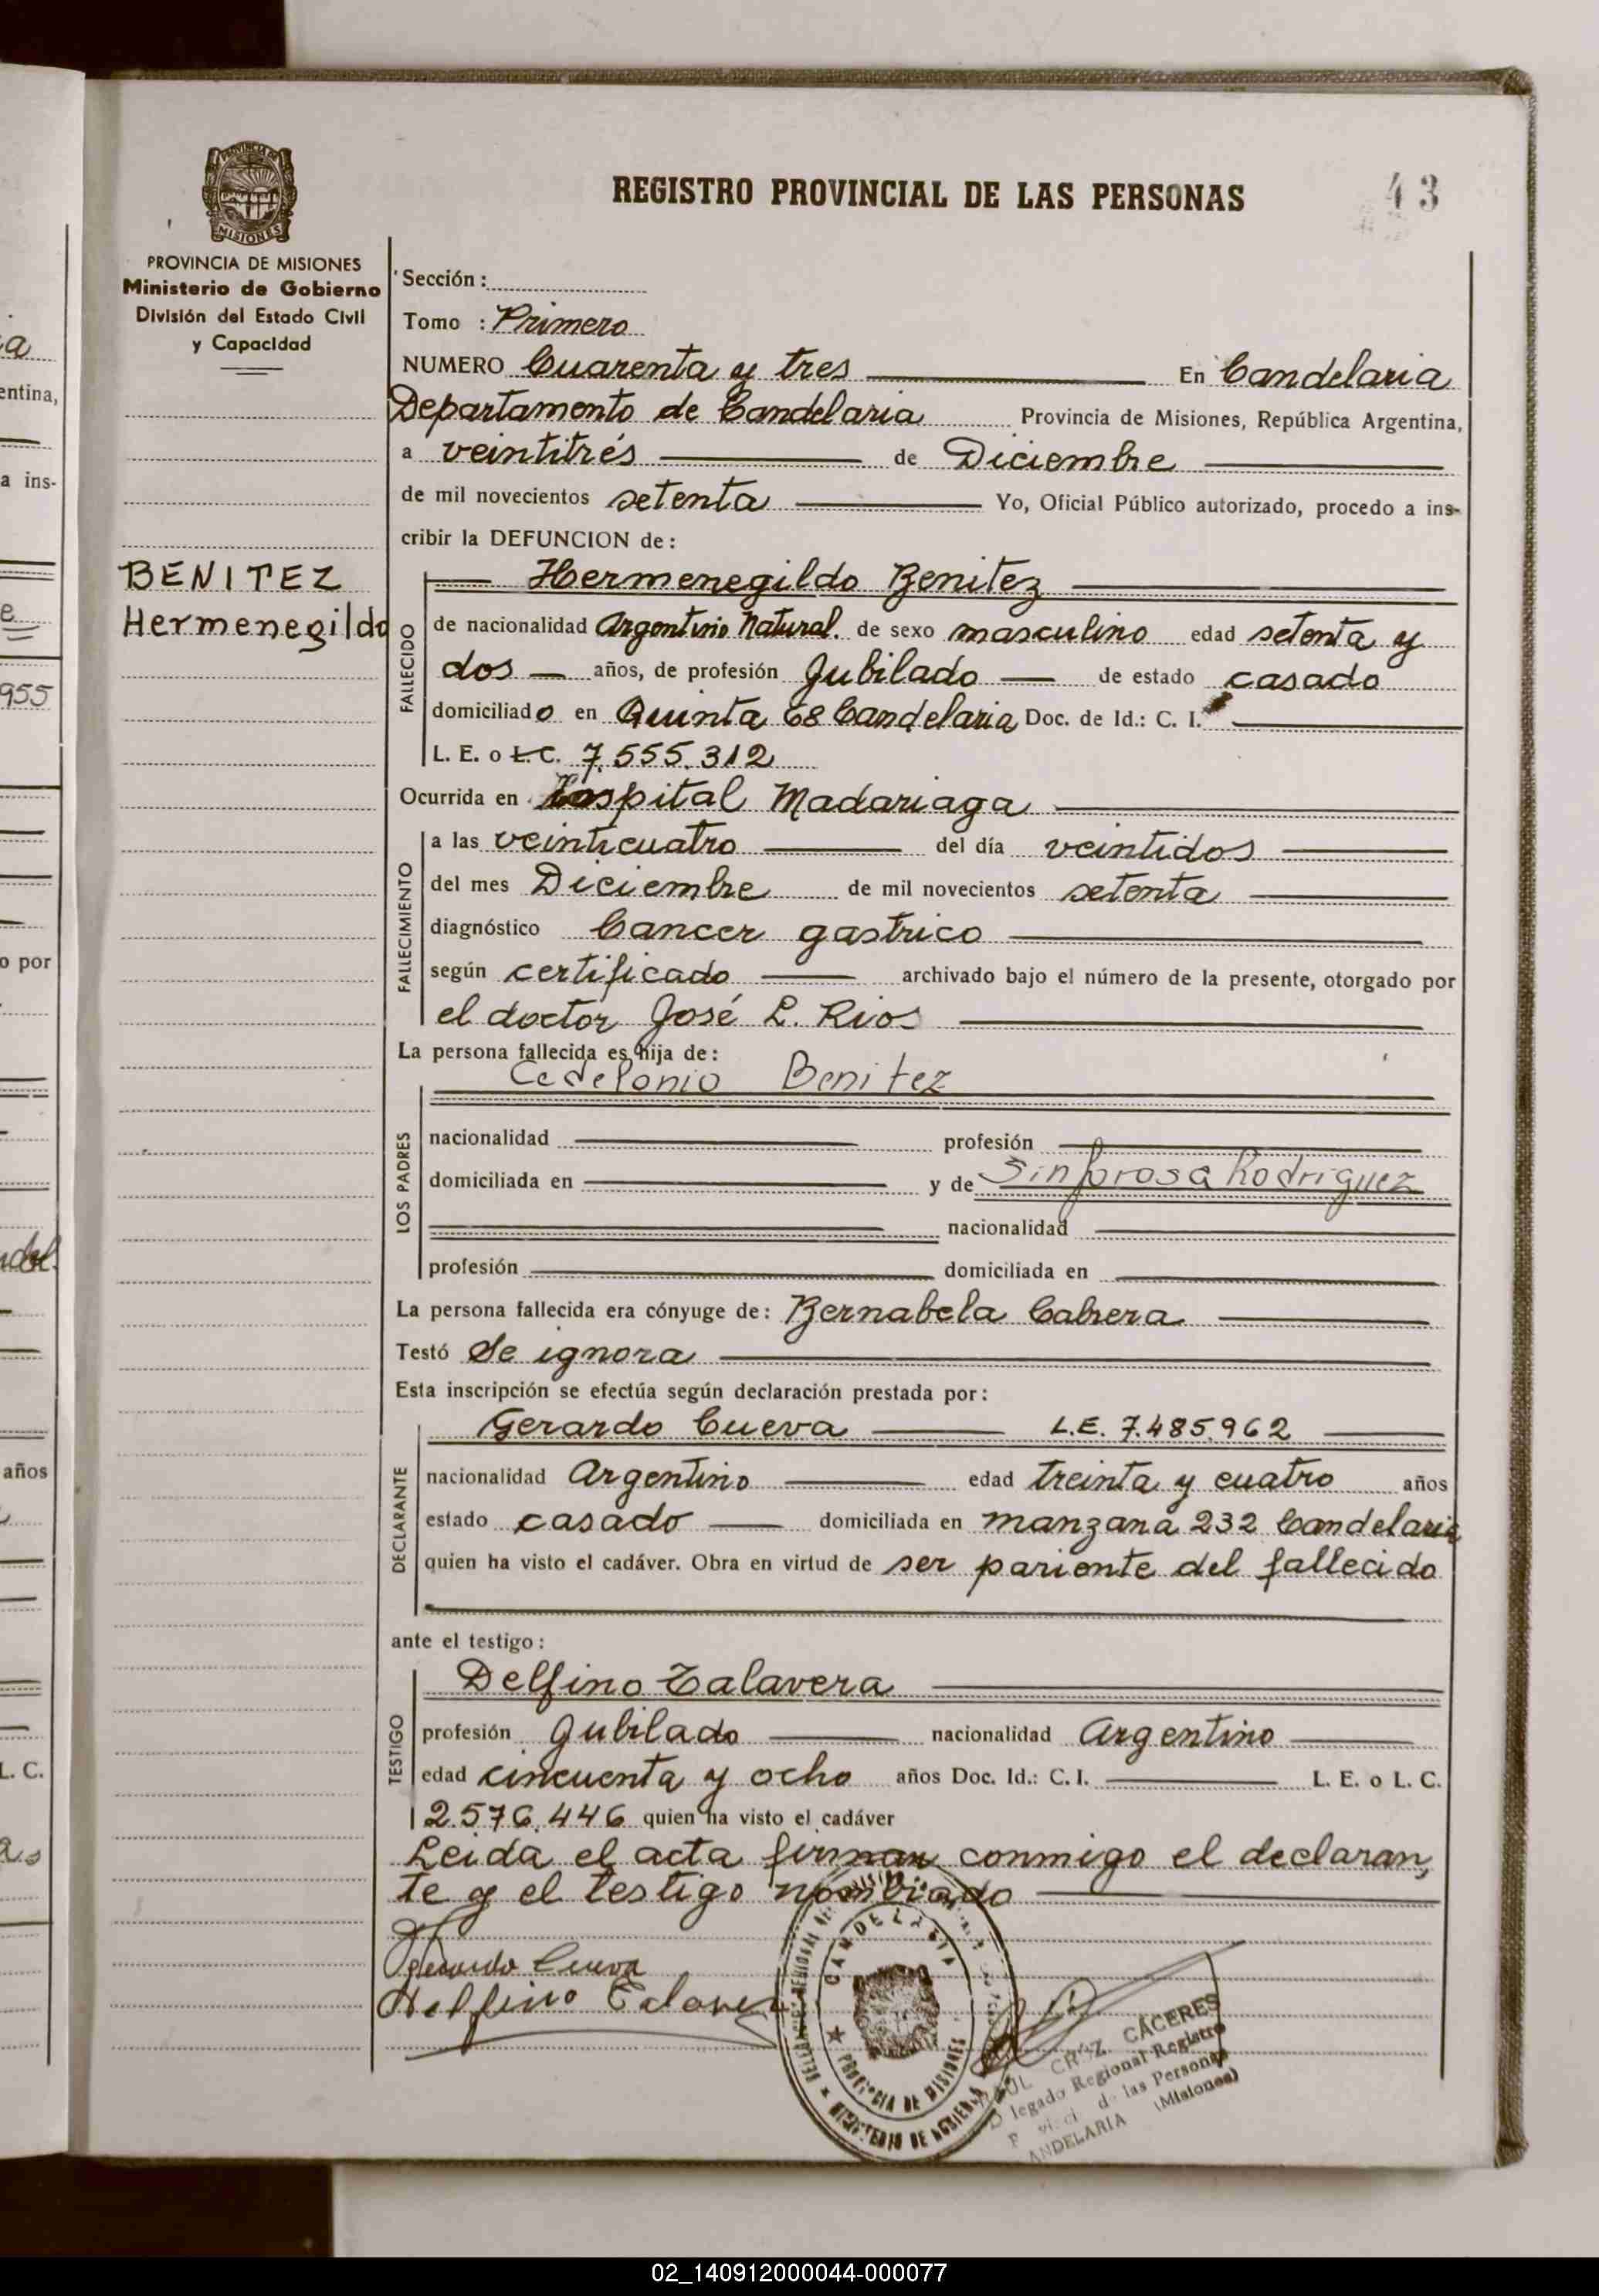 REGISTRO PROVINCIAL DE LAS PERSONAS
43
PROVINCIA DE
MISIONES
PROVINCIA DE MISIONES
Ministerio de Gobierno
División del Estado Civil
y Capacidad
BENITEZ
Hermenegildo
Sección :
Tomo : Primero
NUMERO Cuarenta y tres En Candelaria
Departamento de Candelaria Provincia de Misiones, República Argentina,
a veintitrés de Diciembre
de mil novecientos setenta Yo, Oficial Público autorizado, procedo a ins-
cribir la DEFUNCION de :
Hermenegildo Benitez
FALLECIDO
de nacionalidad Argentino Natural. de sexo masculino edad setenta y
dos — años, de profesión Jubilado — de estado casado
domiciliado en Quinta 68 Candelaria Doc. de Id.: C. I.
L. E. o L.C. 7.555.312
Ocurrida en Hospital Madariaga
FALLECIMIENTO
a las veinticuatro del día veintidos
del mes Diciembre de mil novecientos setenta
diagnóstico Cancer gastrico
según certificado archivado bajo el número de la presente, otorgado por
el doctor José L. Rios
La persona fallecida es hija de :
Cedelonio Benitez
LOS PADRES
nacionalidad profesión
domiciliada en y de Sinforosa Rodriguez
nacionalidad
profesión domiciliada en
La persona fallecida era cónyuge de : Bernabela Cabrera
Testó Se ignora
Esta inscripción se efectúa según declaración prestada por :
Gerardo Cueva L.E. 7.485.962
DECLARANTE
nacionalidad Argentino edad treinta y cuatro años
estado casado domiciliada en manzana 232 Candelaria
quien ha visto el cadáver. Obra en virtud de ser pariente del fallecido
ante el testigo :
Delfino Talavera
TESTIGO
profesión Jubilado nacionalidad Argentino
edad cincuenta y ocho años Doc. Id.: C. I. L. E. o L. C.
2.576.446 quien ha visto el cadáver
Leida el acta firman conmigo el declaran,
te y el testigo nombrado
Gerardo Cueva
Delfino Talavera
CANDELARIA
PROVINCIA DE MISIONES
MINISTERIO DE GOBIERNO
RAUL CRUZ CÁCERES
legado Regional Registro
de las Personas
ANDELARIA (Misiones)
a
entina,
a ins-
e
955
o por
años
L. C.
02_140912000044-000077